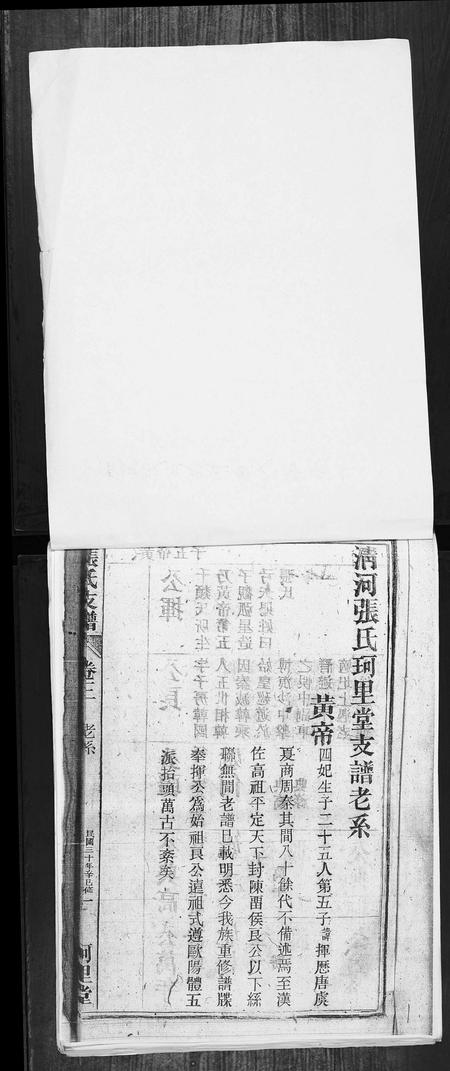 清河張氏珂里堂支譜老系
黃帝
四妃生子二十五人第五子諱揮歷唐虞
夏商周秦其間八十餘代不備述焉至漢
佐高祖平定天下封陳畱侯良公以下綿
聯無間老譜已載明悉今我族重修譜牒
奉揮公爲始祖良公遠祖式遵歐陽體五
派拾頭萬古不紊矣
張氏支譜
卷三
老系
民國三十年辛巳修
一
珂里堂